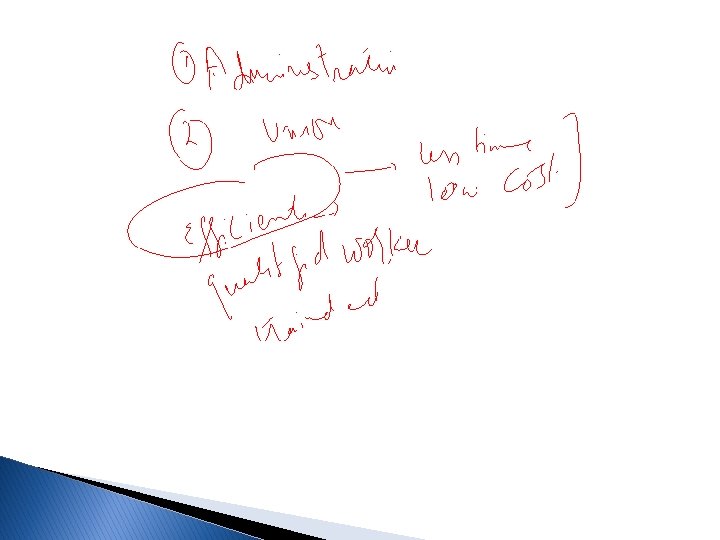 ① Administration
② Union
Efficient → less time
low cost ]
qualified worker
trained